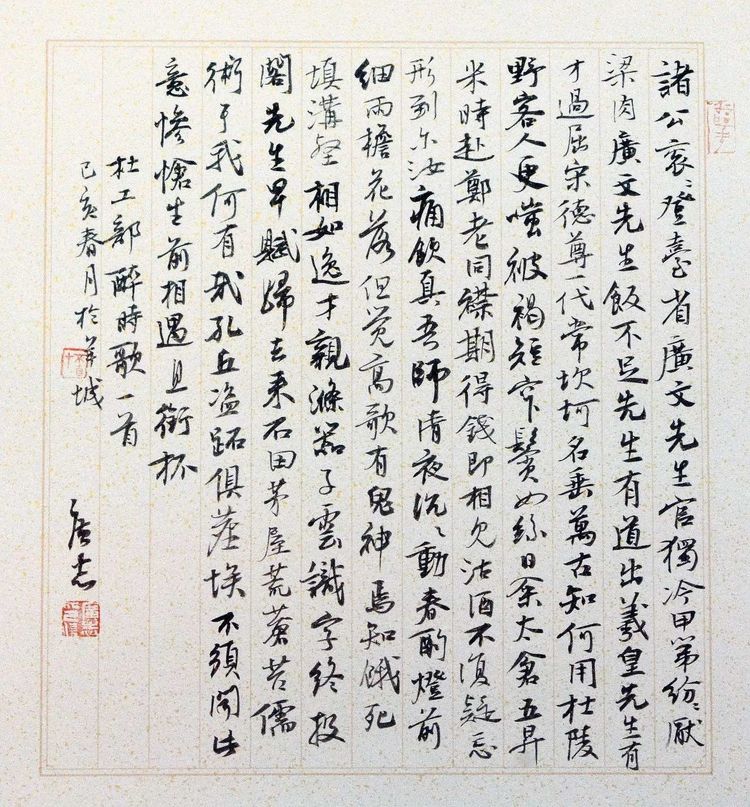 諸公袞〻登臺省廣文先生官獨冷甲第紛〻厭
梁肉廣文先生飯不足先生有道出羲皇先生有
才過屈宋德尊一代常坎坷名垂萬古知何用杜陵
野客人更嗤被褐短窄鬢如絲日糴太倉五升
米時赴鄭老同襟期得錢即相覓沽酒不復疑忘
形到尔汝痛飲真吾師清夜沉〻動春酌燈前
細雨檐花落但覚高歌有鬼神焉知餓死
填溝壑相如逸才親滌器子雲識字終投
閣先生早賦歸去来石田茅屋荒蒼苔儒
術于我何有哉孔丘盗跖俱塵埃不須聞此
意惨愴生前相遇且銜杯
杜工部醉時歌一首
己亥春月於羊城